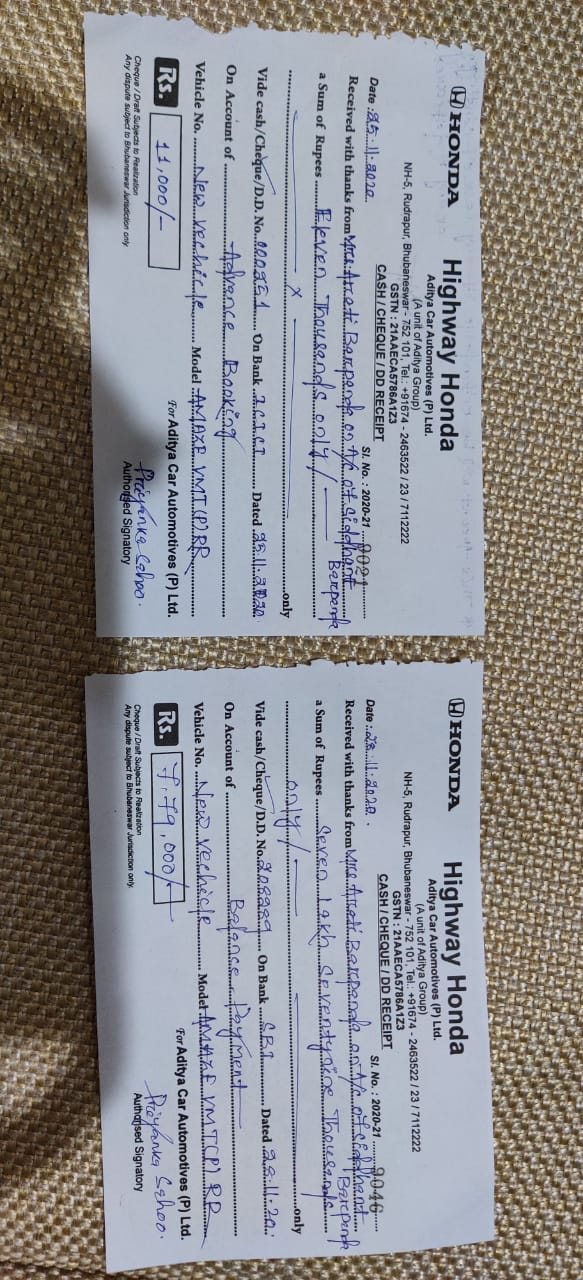 HONDA
Highway Honda
Aditya Car Automotives (P) Ltd.
(A unit of Aditya Group)
NH-5, Rudrapur, Bhubaneswar - 752 101, Tel.: +91674 - 2463522 / 23 / 7112222
GSTN : 21AAECA5786A1Z3
CASH / CHEQUE / DD RECEIPT
Date : 25.11.2020 Sl. No. : 2020-21 9021
Received with thanks from Mrs Arati Barpanda on A/c of Siddhant Barpanda
a Sum of Rupees Eleven Thousands only/
x only
Vide cash/Cheque/D.D. No. 000351 On Bank ICICI Dated 25.11.2020
On Account of Advance Booking
Vehicle No. New Vechicle Model AMAZE VMT(P)RR
Rs. 11,000/-
For Aditya Car Automotives (P) Ltd.
Priyanka Sahoo.
Authorised Signatory
Cheque / Draft Subjects to Realization
Any dispute subject to Bhubaneswar Jurisdiction only.
HONDA
Highway Honda
Aditya Car Automotives (P) Ltd.
(A unit of Aditya Group)
NH-5, Rudrapur, Bhubaneswar - 752 101, Tel.: +91674 - 2463522 / 23 / 7112222
GSTN : 21AAECA5786A1Z3
CASH / CHEQUE / DD RECEIPT
Date : 28.11.2020. Sl. No. : 2020-21 9046
Received with thanks from Mrs Arati Barpanda on A/c of Siddhant Barpanda
a Sum of Rupees Seven Lakh Seventynine Thousands
only/ only
Vide cash/Cheque/D.D. No. On Bank SBI Dated 28.11.20.
On Account of Balance Payment
Vehicle No. New Vechicle Model AMAZE VMT(P)RR
Rs. 7.79,000/-
For Aditya Car Automotives (P) Ltd.
Priyanka Sahoo.
Authorised Signatory
Cheque / Draft Subjects to Realization
Any dispute subject to Bhubaneswar Jurisdiction only.